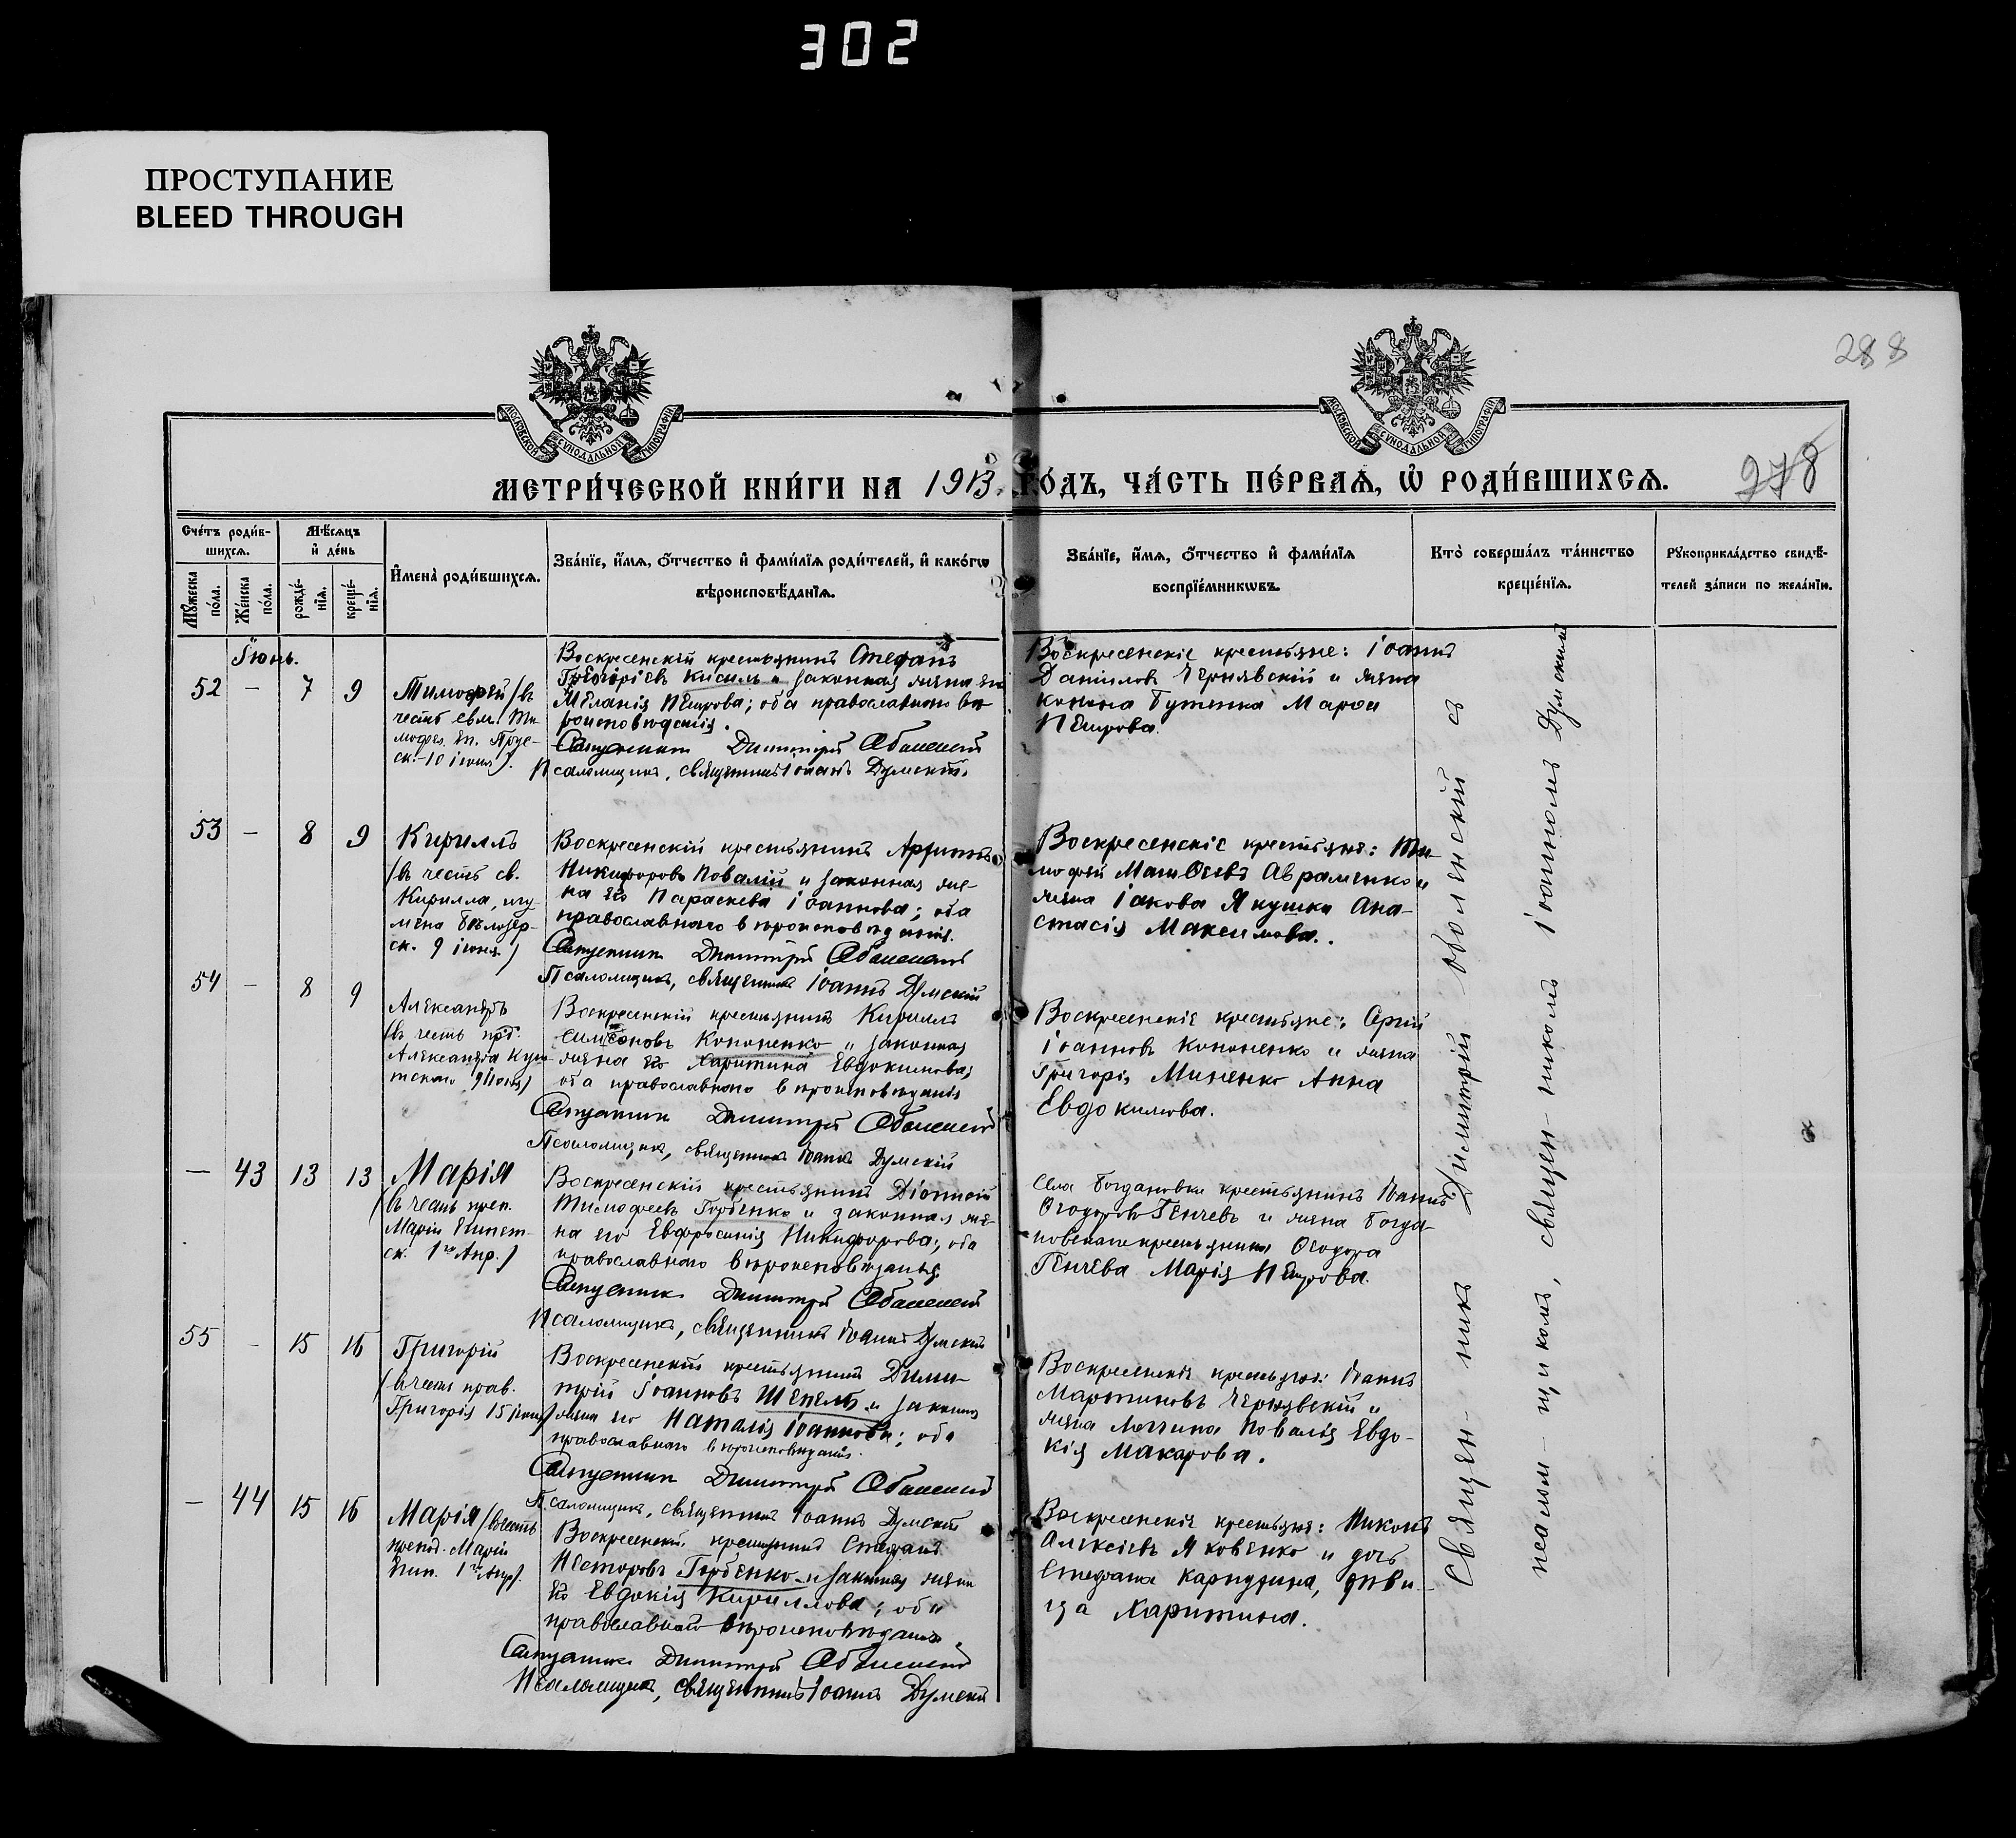 302
ПРОСТУПАНИЕ
BLEED THROUGH
288
МОСКОВСКОЙ СѴНОДАЛЬНОЙ ТИПОГРАФІИ
МОСКОВСКОЙ СѴНОДАЛЬНОЙ ТИПОГРАФІИ
МЕТРИ́ЧЕСКОЙ КНИ́ГИ НА 1913 ГО́ДЪ, ЧА́СТЬ ПЕ́РВАѦ, Ѡ҆ РОДИ́ВШИХСѦ.
278
Сче́тъ роди́в-
шихсѧ.
Мꙋ́жеска по́ла.
Же́нска по́ла.
Мѣ́сѧцъ
и҆ де́нь
рожде́-
нїѧ.
креще́-
нїѧ.
И҆мена̀ роди́вшихсѧ.
Зва́нїе, и҆́мѧ, ѻ҆́тчество и҆ фами́лїѧ роди́телей, и҆ како́гѡ
вѣроисповѣ́данїѧ.
Зва́нїе, и҆́мѧ, ѻ҆́тчество и҆ фами́лїѧ
воспрїе́мникѡвъ.
Кто̀ соверша́лъ та́инство
креще́нїѧ.
Рꙋкоприкла́дство свидѣ́-
телей за́писи по жела́нїю.
Іюнь.
52 — 7 9
Тимофей (въ
честь свм. Ти
мофея еп. Прус-
ск. 10 іюня).
Воскресенскій крестьянинъ Стефанъ
Григоріевъ Кисиль и законная жена его
Меланія Петрова; оба православнаго вѣ-
роисповѣданія.
Священникъ Димитрій Оболенскій
Псаломщикъ, священникъ Іоаннъ Думскій
Воскресенскіе крестьяне: Іоаннъ
Даниловъ Чернявскій и жена
Конона Бутенка Марѳа
Петрова.
53 — 8 9
Кириллъ
(въ честь св.
Кирилла, игу-
мена Бѣлозер-
ск. 9 іюня)
Воскресенскій крестьянинъ
Никифоровъ Повалій и законная же-
на его Параскева Іоаннова; оба
православнаго вѣроисповѣданія.
Священникъ Димитрій Оболенскій
Псаломщикъ, священникъ Іоаннъ Думскій
Воскресенскіе крестьяне: Ти-
мофей Матѳеевъ Авраменко и
жена Іакова Якушка Ана-
стасія Максимова.
54 — 8 9
Александръ
(въ честь прп.
Александра Куш-
тскаго 9 іюня)
Воскресенскій крестьянинъ Кириллъ
Симеоновъ Кононенко и законная
жена его Харитина Евдокимова;
оба православнаго вѣроисповѣданія
Священникъ Димитрій Оболенскій
Псаломщикъ, священникъ Іоаннъ Думскій
Воскресенскіе крестьяне: Сергій
Іоанновъ Кононенко и жена
Григорія Миненко Анна
Евдокимова.
— 43 13 13
Марія
(въ честь преп.
Маріи Египет-
ск. 1го Апр.)
Воскресенскій крестьянинъ Діонисій
Тимофеевъ Горбенко и законная же-
на его Евфросинія Никифорова; оба
православнаго вѣроисповѣданія
Священникъ Димитрій Оболенскій
Псаломщикъ, священникъ Іоаннъ Думскій
Села Богдановки крестьянинъ Іоаннъ
Ѳеодоровъ Генчевъ и жена Богда-
новскаго крестьянина Ѳеодора
Генчева Марія Петрова.
55 — 15 16
Григорій
(въ честь прав.
Григорія 15 іюня)
Воскресенскій крестьянинъ Дими-
трій Іоанновъ Шепель и законная
жена его Наталія Іоаннова; оба
православнаго вѣроисповѣданія.
Священникъ Димитрій Оболенскій
Псаломщикъ, священникъ Іоаннъ Думскій
Воскресенскіе крестьяне: Іоаннъ
Мартиновъ Чернявскій и
жена Логгина Повалія Евдо-
кія Макарова.
— 44 15 16
Марія (въ честь
препод. Маріи
Егип. 1го Апр).
Воскресенскій крестьянинъ Стефанъ
Несторовъ Горбенко и законная жена
его Евдокія Кириллова; оба
православнаго вѣроисповѣданія.
Священникъ Димитрій Оболенскій
Псаломщикъ, священникъ Іоаннъ Думскій
Воскресенскіе крестьяне: Никонъ
Алексіевъ Яковенко и дочь
Стефана дѣви-
ца Харитина.
Священ- никъ Димитрій Оболенскій съ
псалом- щикомъ, священ- никомъ Іоанномъ Думскимъ